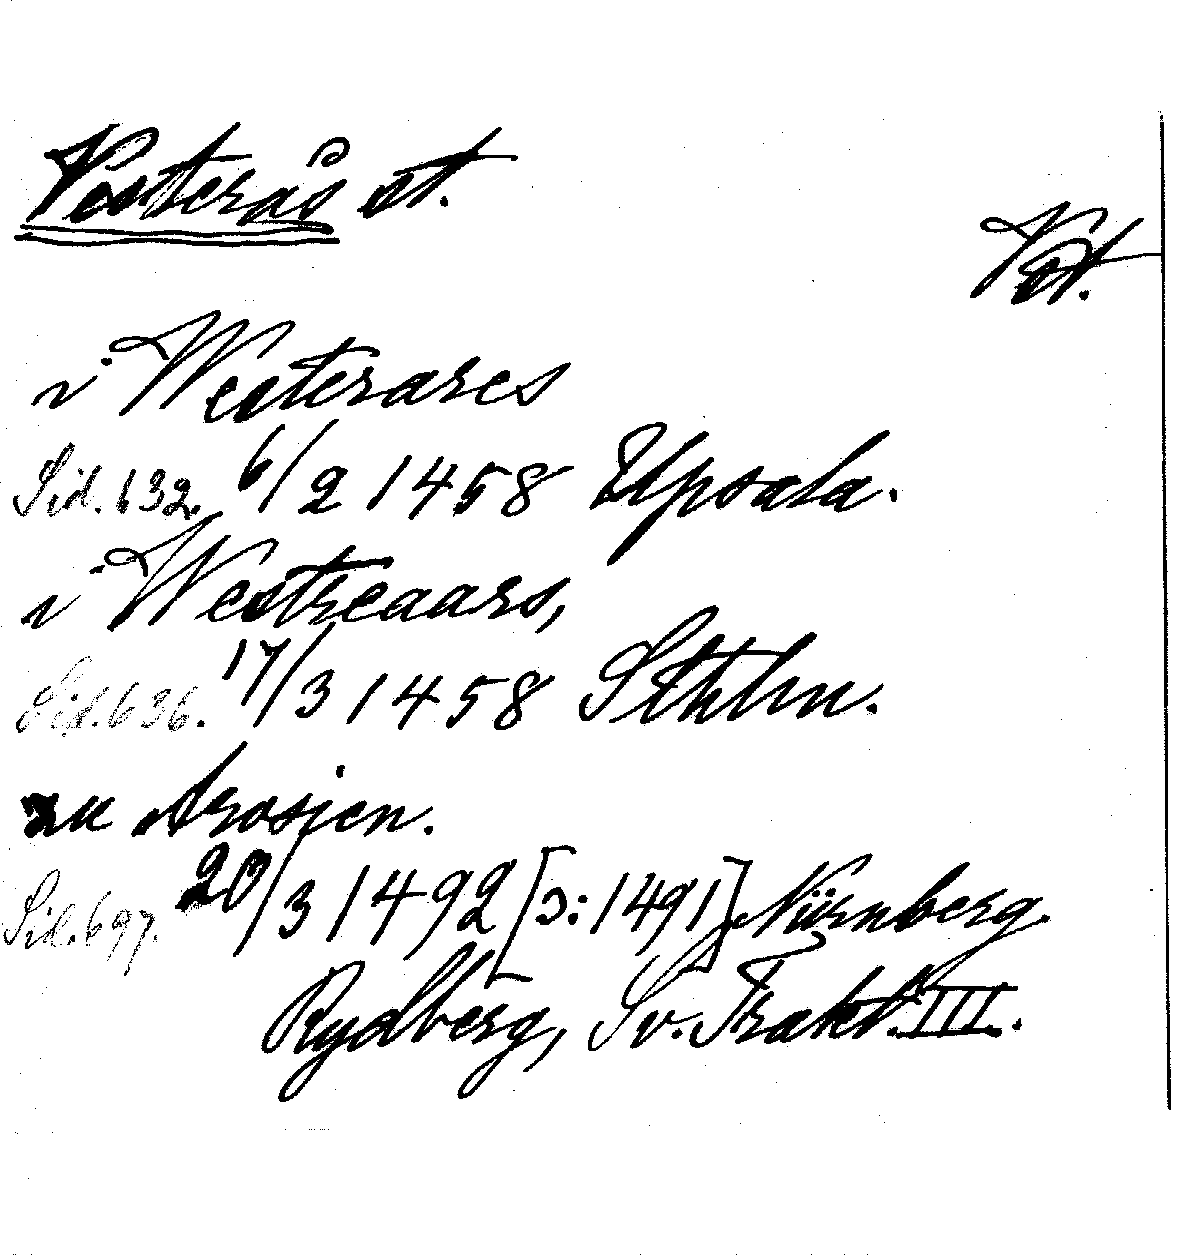 Vesterås st.
Vst.
i Westerares
Sid. 632. 6/2 1458 Upsala.
i Westreaars,
Sid. 636. 17/3 1458 Sthlm.
zu Arosien.
Sid. 697. 20/3 1492 [ɔ: 1491] Nürnberg.
Rydberg, Sv. Trakt. III.